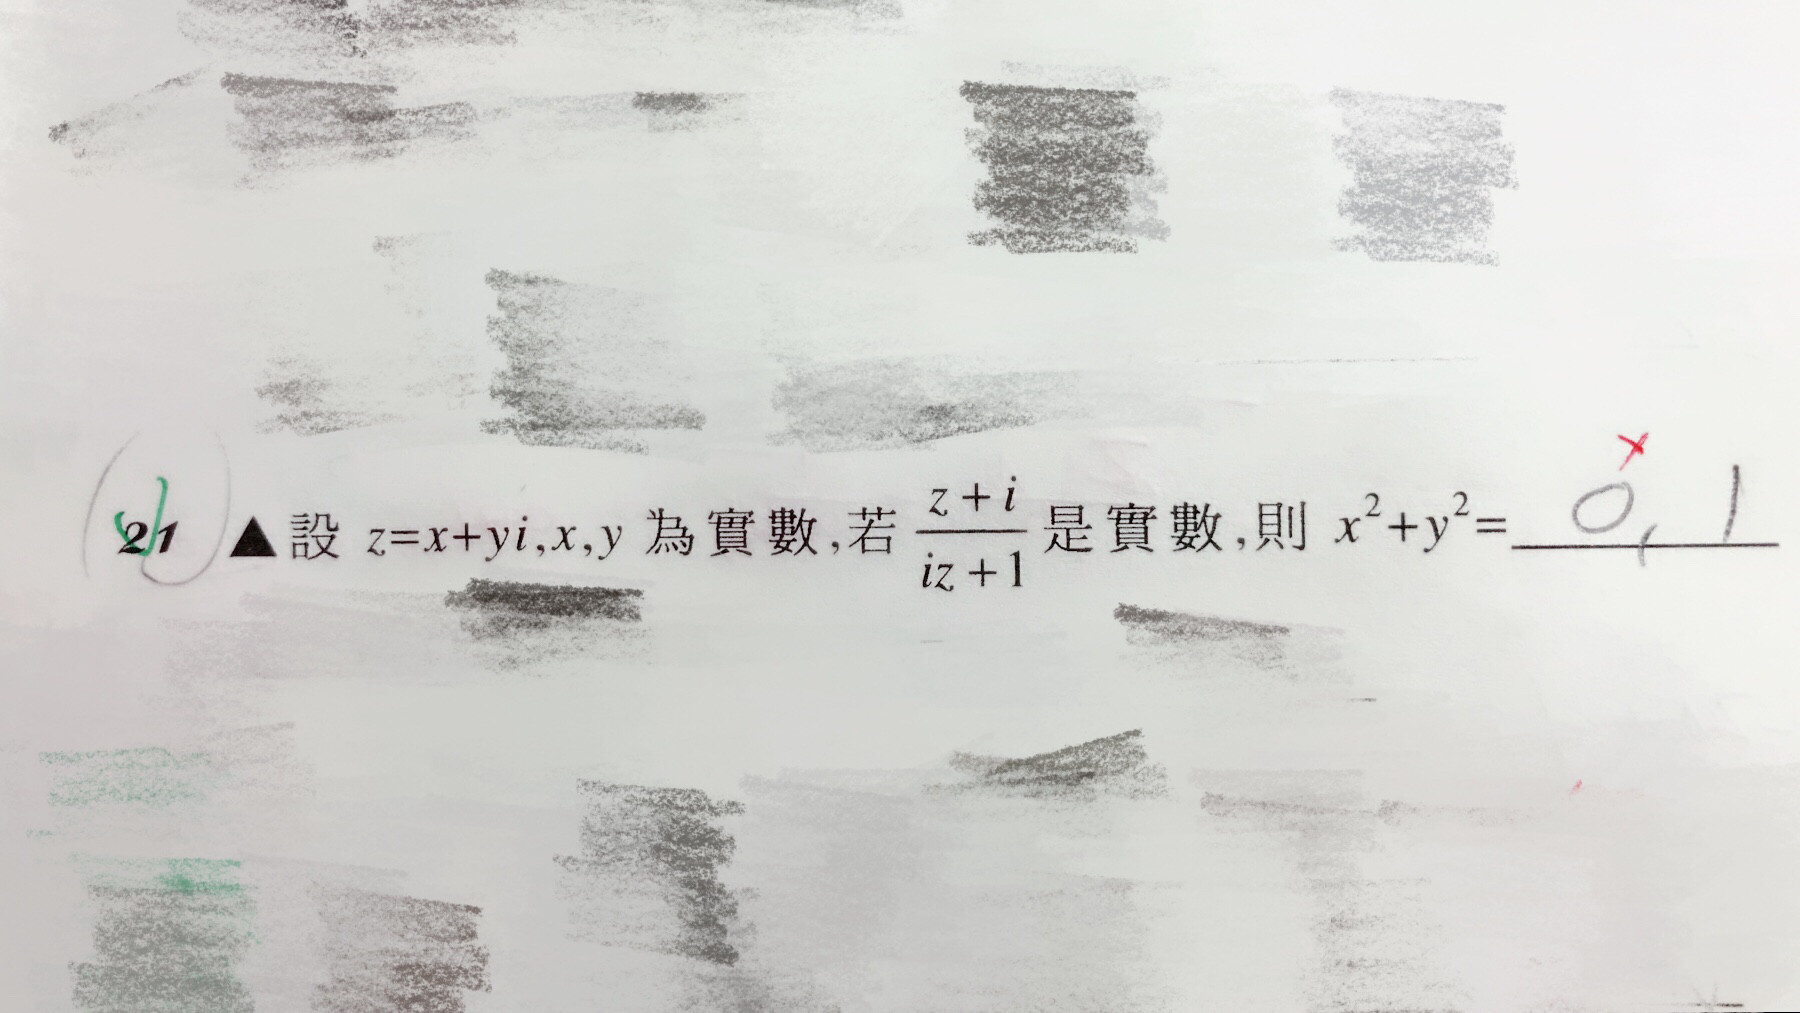 21 ▲設 z=x+yi,x,y 為實數,若 \frac{z+i}{iz+1} 是實數,則 x²+y²= 0, 1